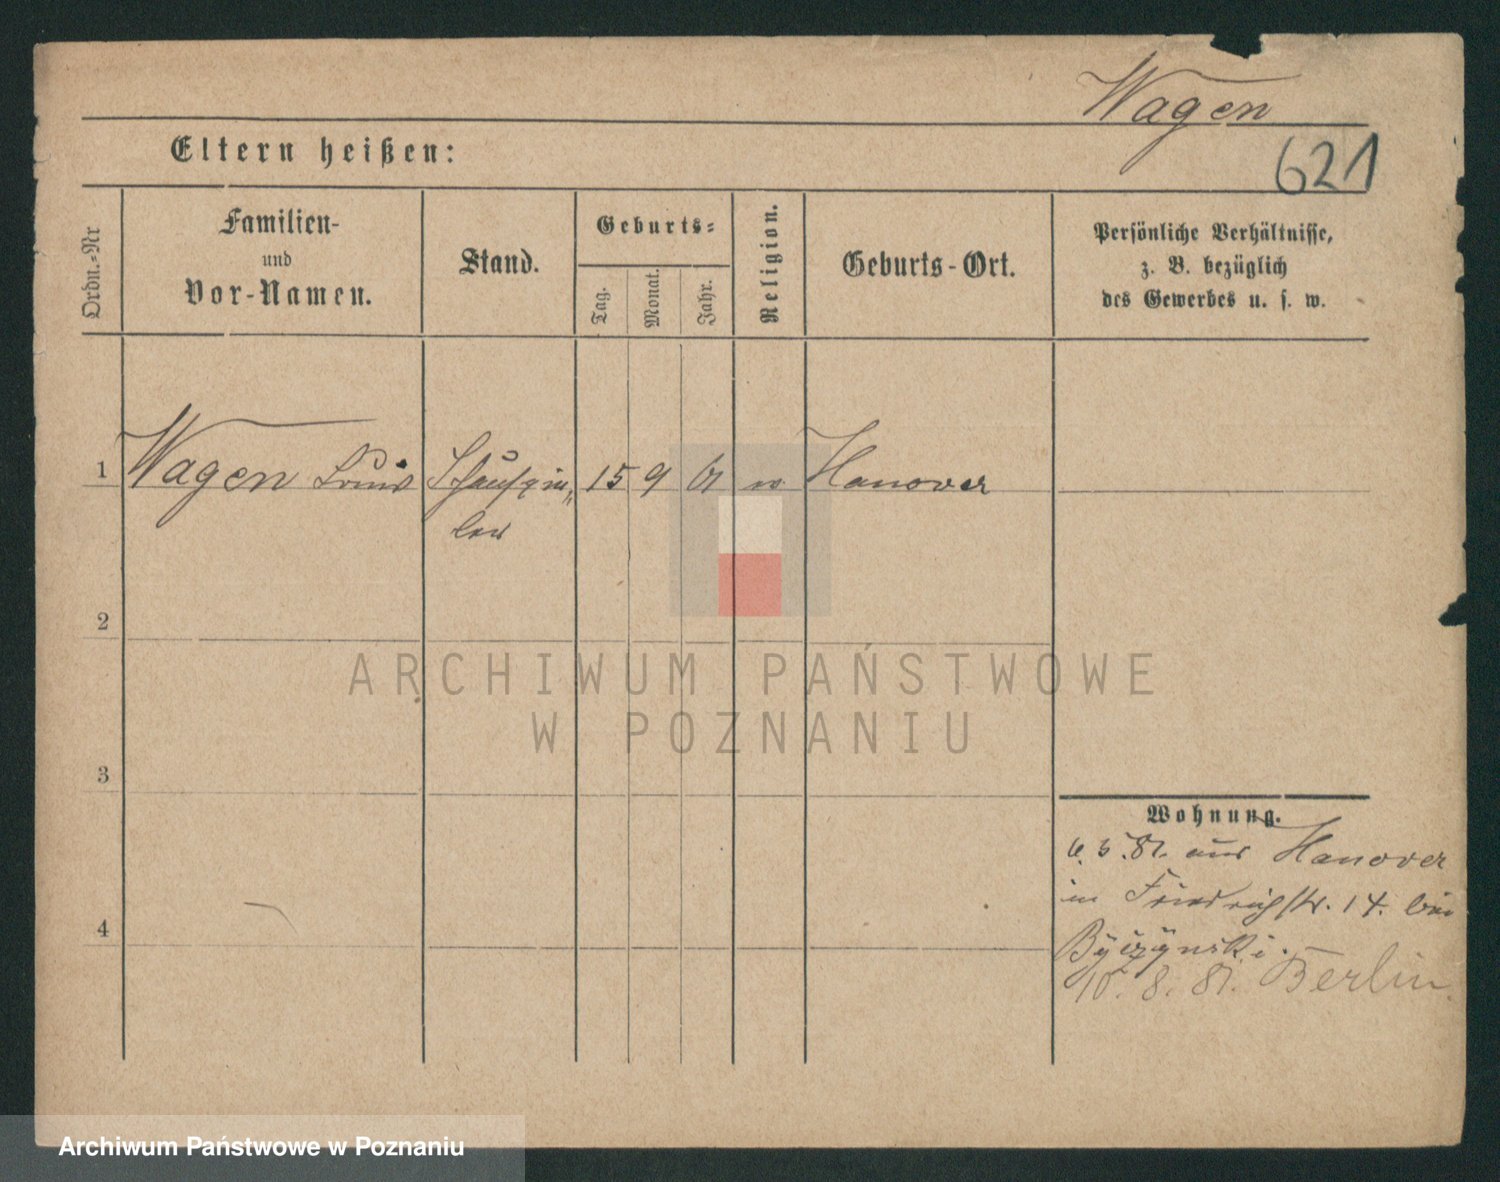 Wagen
621
Eltern heißen:
Ordn.-Nr
Familien-
und
Vor-Namen.
Stand.
Geburts-
Tag.
Monat.
Jahr.
Religion.
Geburts-Ort.
Persönliche Verhältnisse,
z. B. bezüglich
des Gewerbes u. s. w.
1 Wagen Louis Schauspie- 15 9 61 Hanover
ler
2
3
4
Wohnung.
6.5.81. aus Hanover
in Friedrichstr. 14. bei
10.8.81. Berlin.
ARCHIWUM PAŃSTWOWE
W POZNANIU
Archiwum Państwowe w Poznaniu